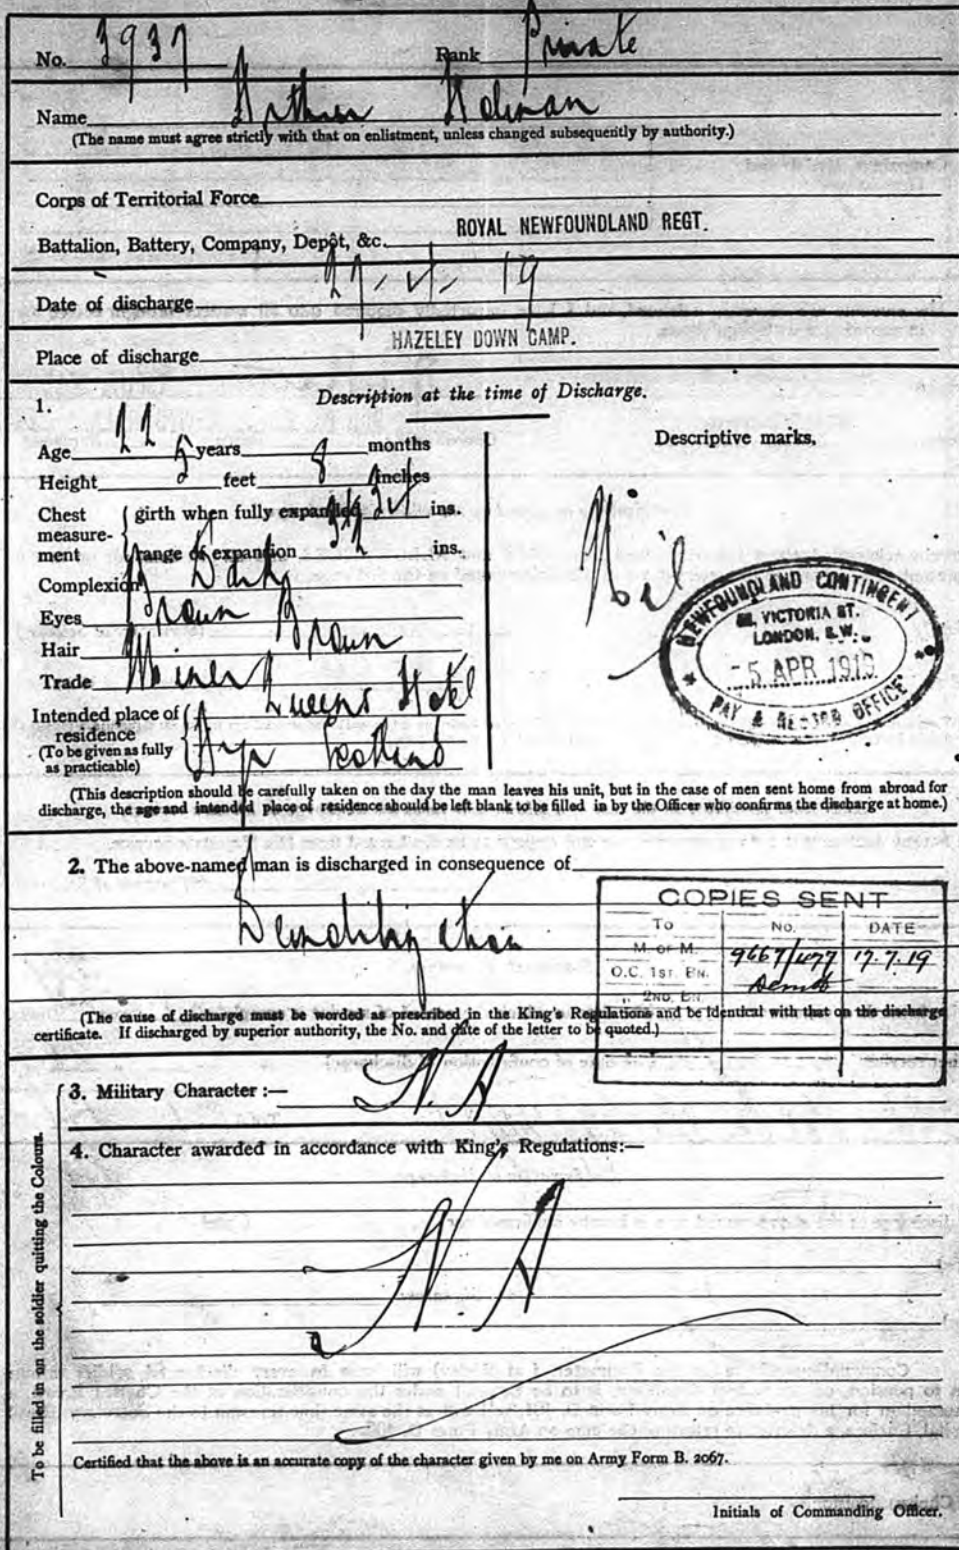 No. 3937 Rank Private
Name Arthur Holman
(The name must agree strictly with that on enlistment, unless changed subsequently by authority.)
Corps of Territorial Force
Battalion, Battery, Company, Depôt, &c. ROYAL NEWFOUNDLAND REGT.
Date of discharge 19
Place of discharge HAZELEY DOWN CAMP.
1. Description at the time of Discharge.
Age 22 years months
Height 5 feet 8 inches
Chest measure-ment { girth when fully expanded ins.
range of expansion ins.
Complexion Dark
Eyes Brown
Hair Brown
Trade Miner
Intended place of residence Queens Hotel
(To be given as fully as practicable) Ayr Scotland
Descriptive marks.
Nil
NEWFOUNDLAND CONTINGENT
VICTORIA ST.
LONDON, S.W.
5 APR 1919
PAY & RECORD OFFICE
(This description should be carefully taken on the day the man leaves his unit, but in the case of men sent home from abroad for
discharge, the age and intended place of residence should be left blank to be filled in by the Officer who confirms the discharge at home.)
2. The above-named man is discharged in consequence of
Demobilization
COPIES SENT
To No. DATE
M. OF M. 9667/477 17.7.19
O.C. 1ST. BN. Demob
„ 2ND. BN.
(The cause of discharge must be worded as prescribed in the King's Regulations and be identical with that on the discharge
certificate. If discharged by superior authority, the No. and date of the letter to be quoted.)
To be filled in on the soldier quitting the Colours.
3. Military Character :—
4. Character awarded in accordance with King's Regulations:—
Certified that the above is an accurate copy of the character given by me on Army Form B. 2067.
Initials of Commanding Officer.